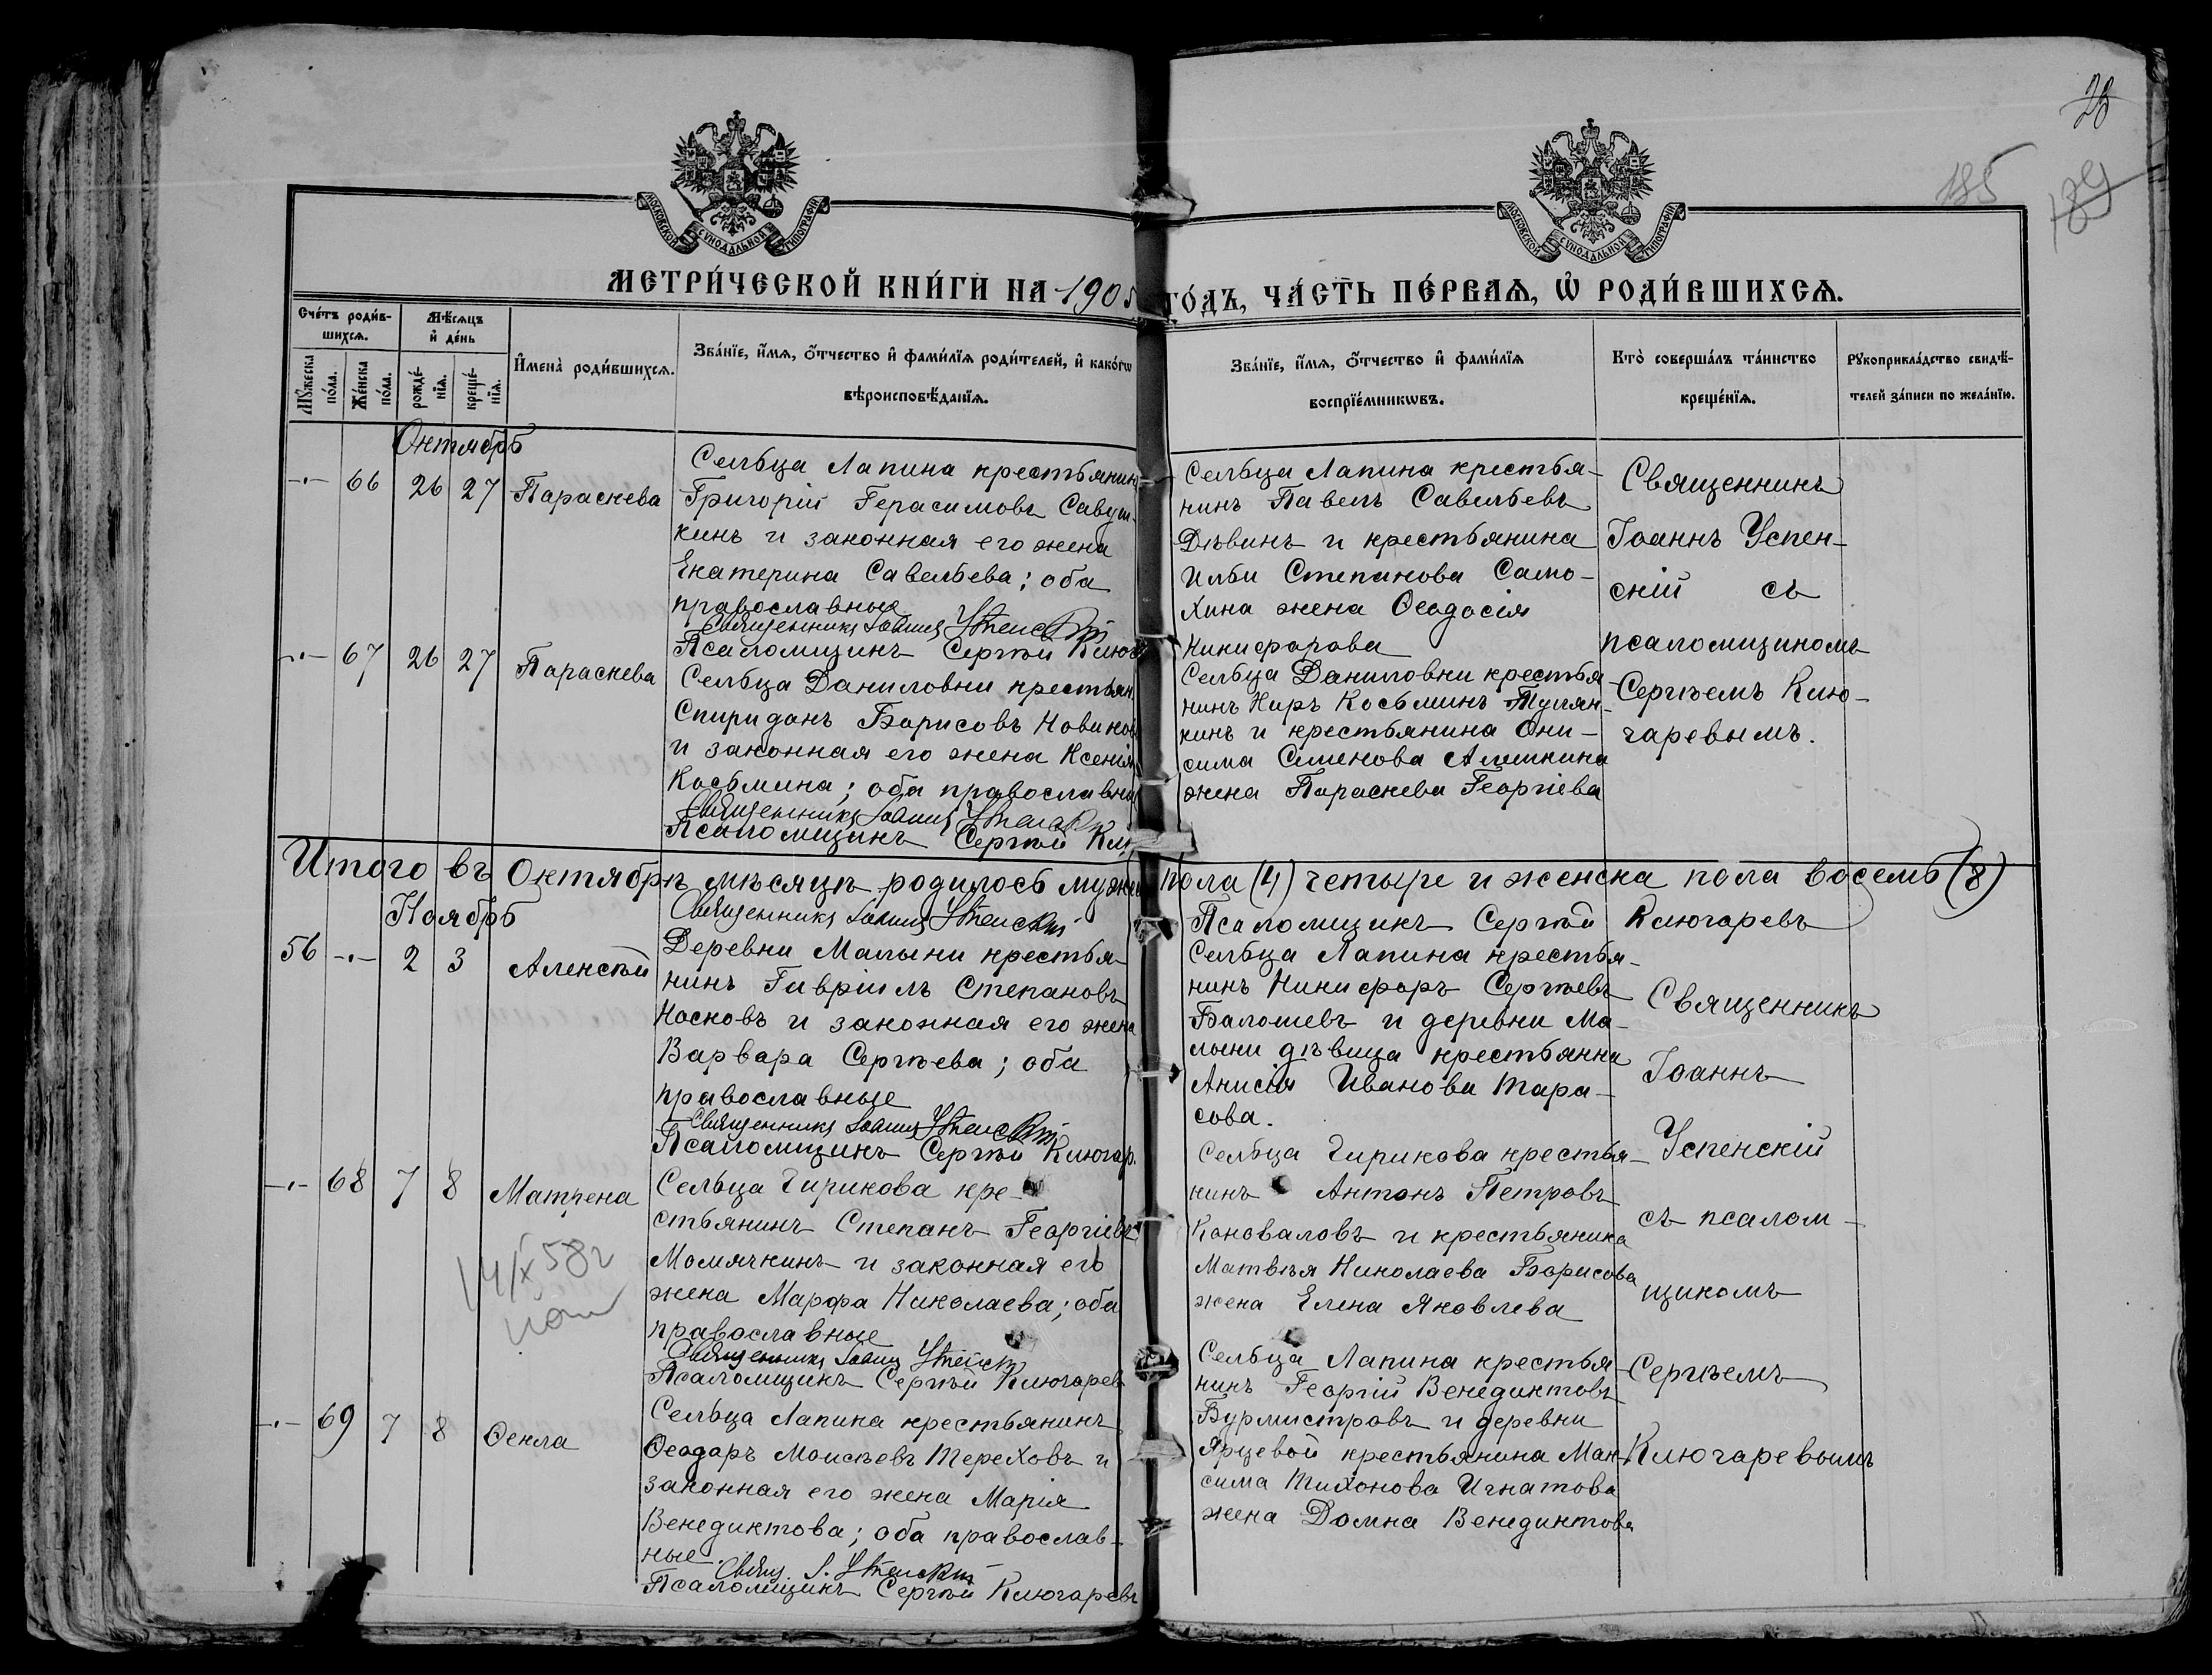 28
185
189
МОСКОВСКОЙ СѴНОДАЛЬНОЙ ТИПОГРАФІИ
МОСКОВСКОЙ СѴНОДАЛЬНОЙ ТИПОГРАФІИ
МЕТРИ́ЧЕСКОЙ КНИ́ГИ НА 1905 ГО́ДЪ, ЧА́СТЬ ПЕ́РВАЯ, Ѡ РОДИ́ВШИХСЯ.
Сче́тъ роди́в-
шихся.
Мѣ́сяцъ
и де́нь
Мꙋ́жеска
по́ла.
Же́нска
по́ла.
рожде́-
нія.
креще́-
нія.
Имена̀ роди́вшихся.
Зва́нїе, и́мя, о́тчество и фами́лїя роди́телей, и како́гѡ
вѣроисповѣ́данїя.
Зва́нїе, и́мя, о́тчество и фами́лїя
воспрїе́мникѡвъ.
Кто̀ соверша́лъ та́инство
креще́нїя.
Рꙋкоприкла́дство свидѣ́-
телей за́писи по жела́нїю.
Октябрь
-·- 66 26 27 Параскева
Сельца Лапина крестьянинъ
Григорій Герасимовъ Савуш-
кинъ и законная его жена
Екатерина Савельева; оба
православные
Священникъ Іоаннъ Успенскій
Псаломщикъ Сергѣй Ключ
Сельца Лапина крестья-
нинъ Павелъ Савельевъ
Дѣвинъ и крестьянина
Ильи Степанова Само-
хина жена Ѳеодосія
Никифорова
Священникъ
Іоаннъ Успен-
скій съ
псаломщикомъ
Сергѣемъ Клю-
чаревымъ.
-·- 67 26 27 Параскева
Сельца Даниловки крестьян
Спиридонъ Борисовъ Новиков
и законная его жена Ксенія
Косьмина; оба православны
Священникъ Іоаннъ Успенскій
Псаломщикъ Сергѣй Клю
Сельца Даниловки крестья-
нинъ Киръ Косьминъ Тулян-
кинъ и крестьянина Они-
сима Семенова Алешкина
жена Параскева Георгіева
Итого въ Октябрѣ мѣсяцѣ родилось мужска пола (4) четыре и женска пола восемь (8)
Священникъ Іоаннъ Успенскій
Псаломщикъ Сергѣй Ключаревъ
Ноябрь
56 -·- 2 3 Алексѣй
Деревни Малыни крестья-
нинъ Гавріилъ Степановъ
Носковъ и законная его жена
Варвара Сергѣева; оба
православные
Священникъ Іоаннъ Успенскій
Псаломщикъ Сергѣй Ключар.
Сельца Лапина крестья-
нинъ Никифоръ Сергѣевъ
Балошевъ и деревни Ма-
лыни дѣвица крестьянка
Анисія Иванова Тара-
сова.
Священникъ
Іоаннъ
Успенскій
съ псалом-
щикомъ
Сергѣемъ
Ключаревымъ
-·- 68 7 8 Матрена
14/X 58г
Сельца Чирикова кре-
стьянинъ Степанъ Георгіевъ
Момячкинъ и законная его
жена Марфа Николаева; оба
православные
Священникъ Іоаннъ Успенскій
Псаломщикъ Сергѣй Ключарев
Сельца Чирикова крестья-
нинъ Антонъ Петровъ
Коноваловъ и крестьянина
Матвѣя Николаева Борисова
жена Елена Яковлева
-·- 69 7 8 Ѳекла
Сельца Лапина крестьянинъ
Ѳеодоръ Моисѣевъ Тереховъ и
законная его жена Марія
Венедиктова; оба православ-
ные.
Свящ. І. Успенскій
Псаломщикъ Сергѣй Ключаревъ
Сельца Лапина крестья-
нинъ Георгій Венедиктовъ
Бурмистровъ и деревни
Ярцевой крестьянина Мак-
сима Тихонова Игнатова
жена Домна Венедиктова